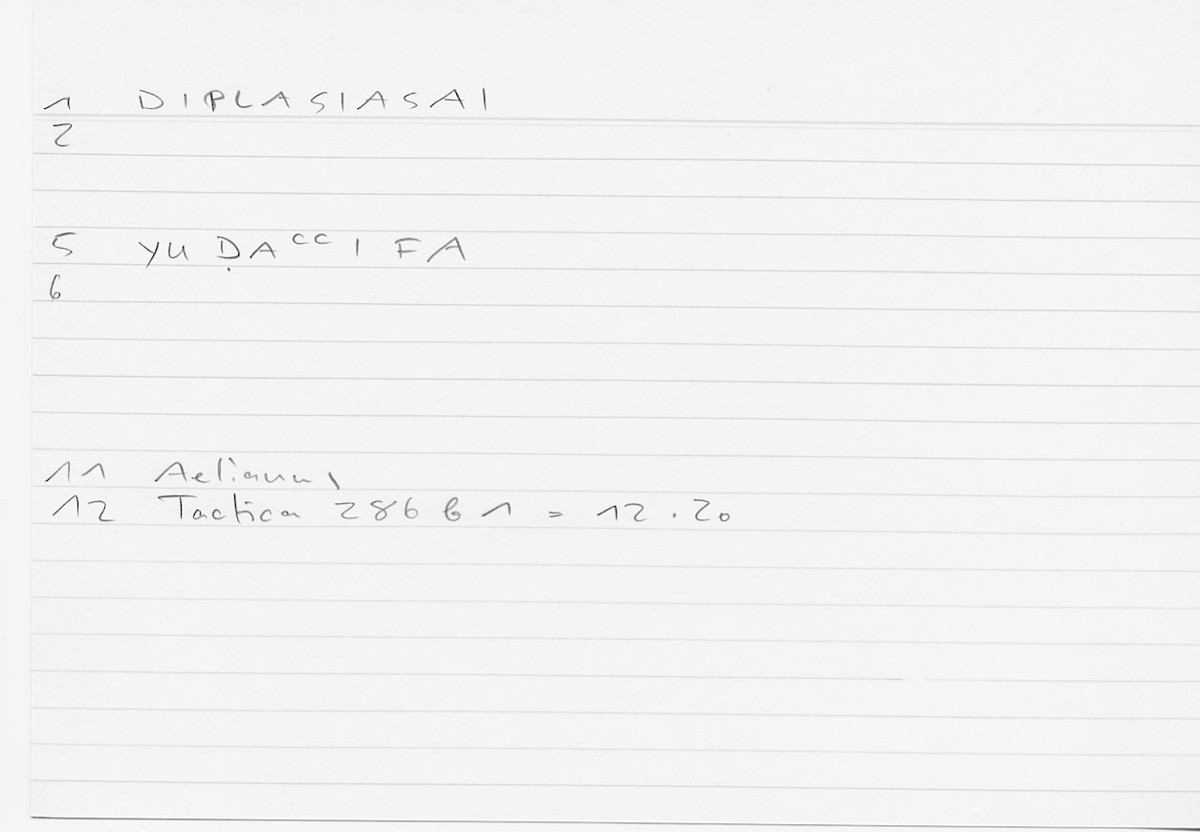 1 DIPLASIASAI
2
5 YU ḌA^CC I FA
6
11 Aelianus
12 Tactica 286 b 1 = 12.20